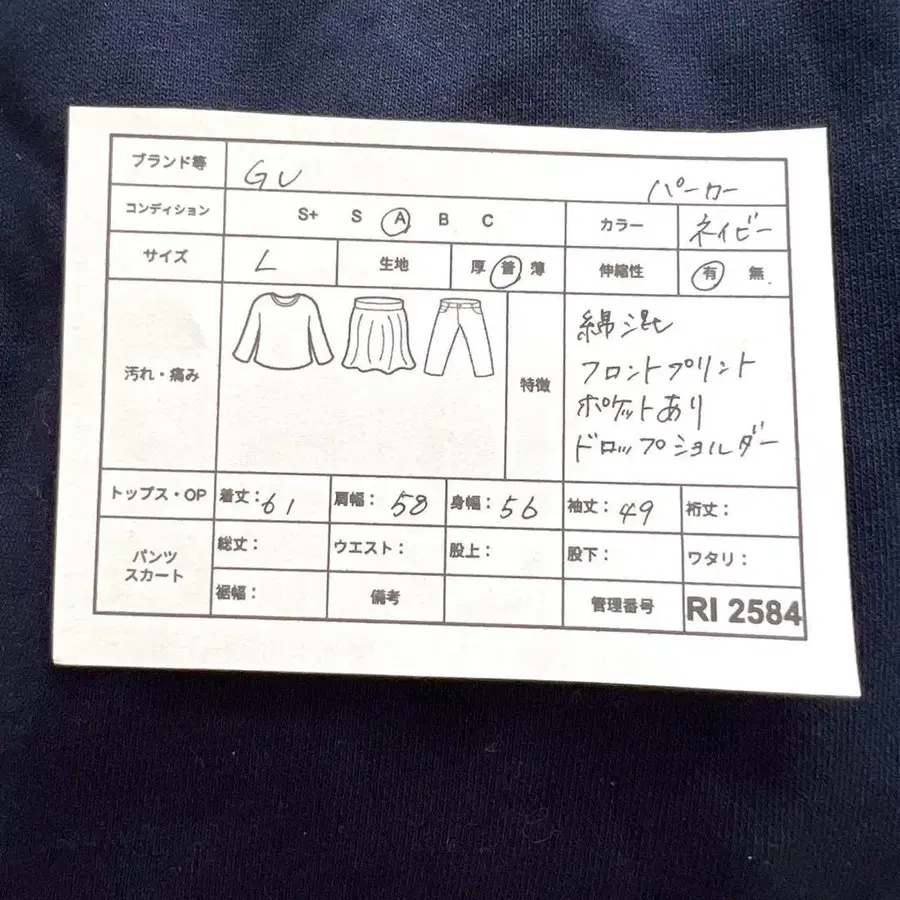 ブランド等 GU パーカー
コンディション S+ S A B C カラー ネイビー
サイズ L 生地 厚 普 薄 伸縮性 有 無
汚れ・痛み 特徴
綿混
フロントプリント
ポケットあり
ドロップショルダー
トップス・OP 着丈：61 肩幅：58 身幅：56 袖丈：49 裄丈：
パンツ
スカート
総丈： ウエスト： 股上： 股下： ワタリ：
裾幅： 備考 管理番号 RI 2584